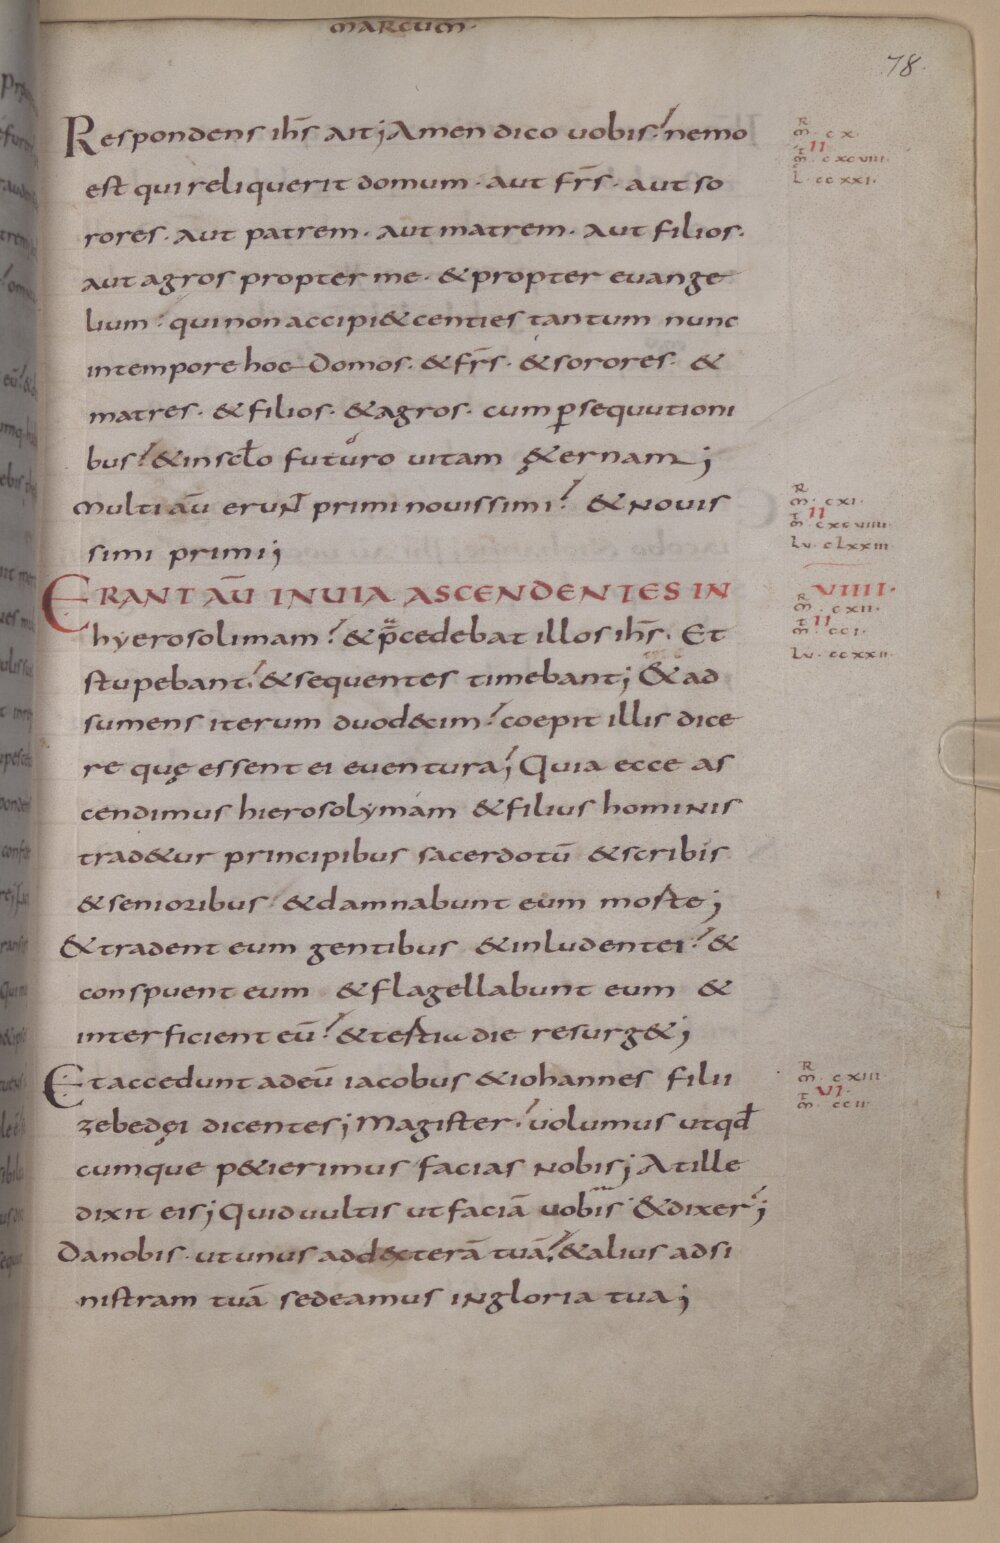 MARCUM·
78.
Respondens ihs̄ ait; Amen dico uobis. nemo
est qui reliquerit domum· aut fr̄s· aut so
rores· aut patrem· aut matrem· aut filios·
aut agros propter me· & propter euange
lium· qui non accipi& centies tantum nunc
in tempore hoc Domos· & fr̄s· & sorores· &
matres· & filios· & agros· cum ꝑsequutioni
bus. & in scło futuro uitam ę&ernam;
Multi aū erunt̄ primi nouissimi. & nouis
simi primi;
ERANT AŪ IN UIA ASCENDENTES IN
hyerosolimam. & p̄cedebat illos ihs̄. Et
stupebant. & sequentes timebant; & ad
sumens iterum duod&cim. coepit illis dice
re quę essent ei euentura; Quia ecce as
cendimus hierosolymam & filius hominis
trad&ur principibus sacerdotū & scribis
& senioribus & damnabunt eum morte;
& tradent eum gentibus & inludent ei. &
conspuent eum & flagellabunt eum &
interficient eū. & tertia die resurg&;
Et accedunt ad eū iacobus & iohannes filii
zebedęi dicentes; Magister. uolumus ut qd̄
cumque p&ierimus facias nobis; At ille
dixit eis; Quid uultis ut faciā uobis & dixer̄;
Da nobis· ut unus ad d&xterā tuā. & alius ad si
nistram tuā sedeamus in gloria tua;
R
m̄· cx·
II
m̄· cxcuiii·
L· ccxxi·
R
m̄· cxi·
II
m̄· cxcuiiii·
Lu· clxxiii·
VIIII·
R
m̄· cxii·
II
m̄· cci·
Lu· ccxxii·
R
m̄· cxiii·
VI·
m̄· ccii·